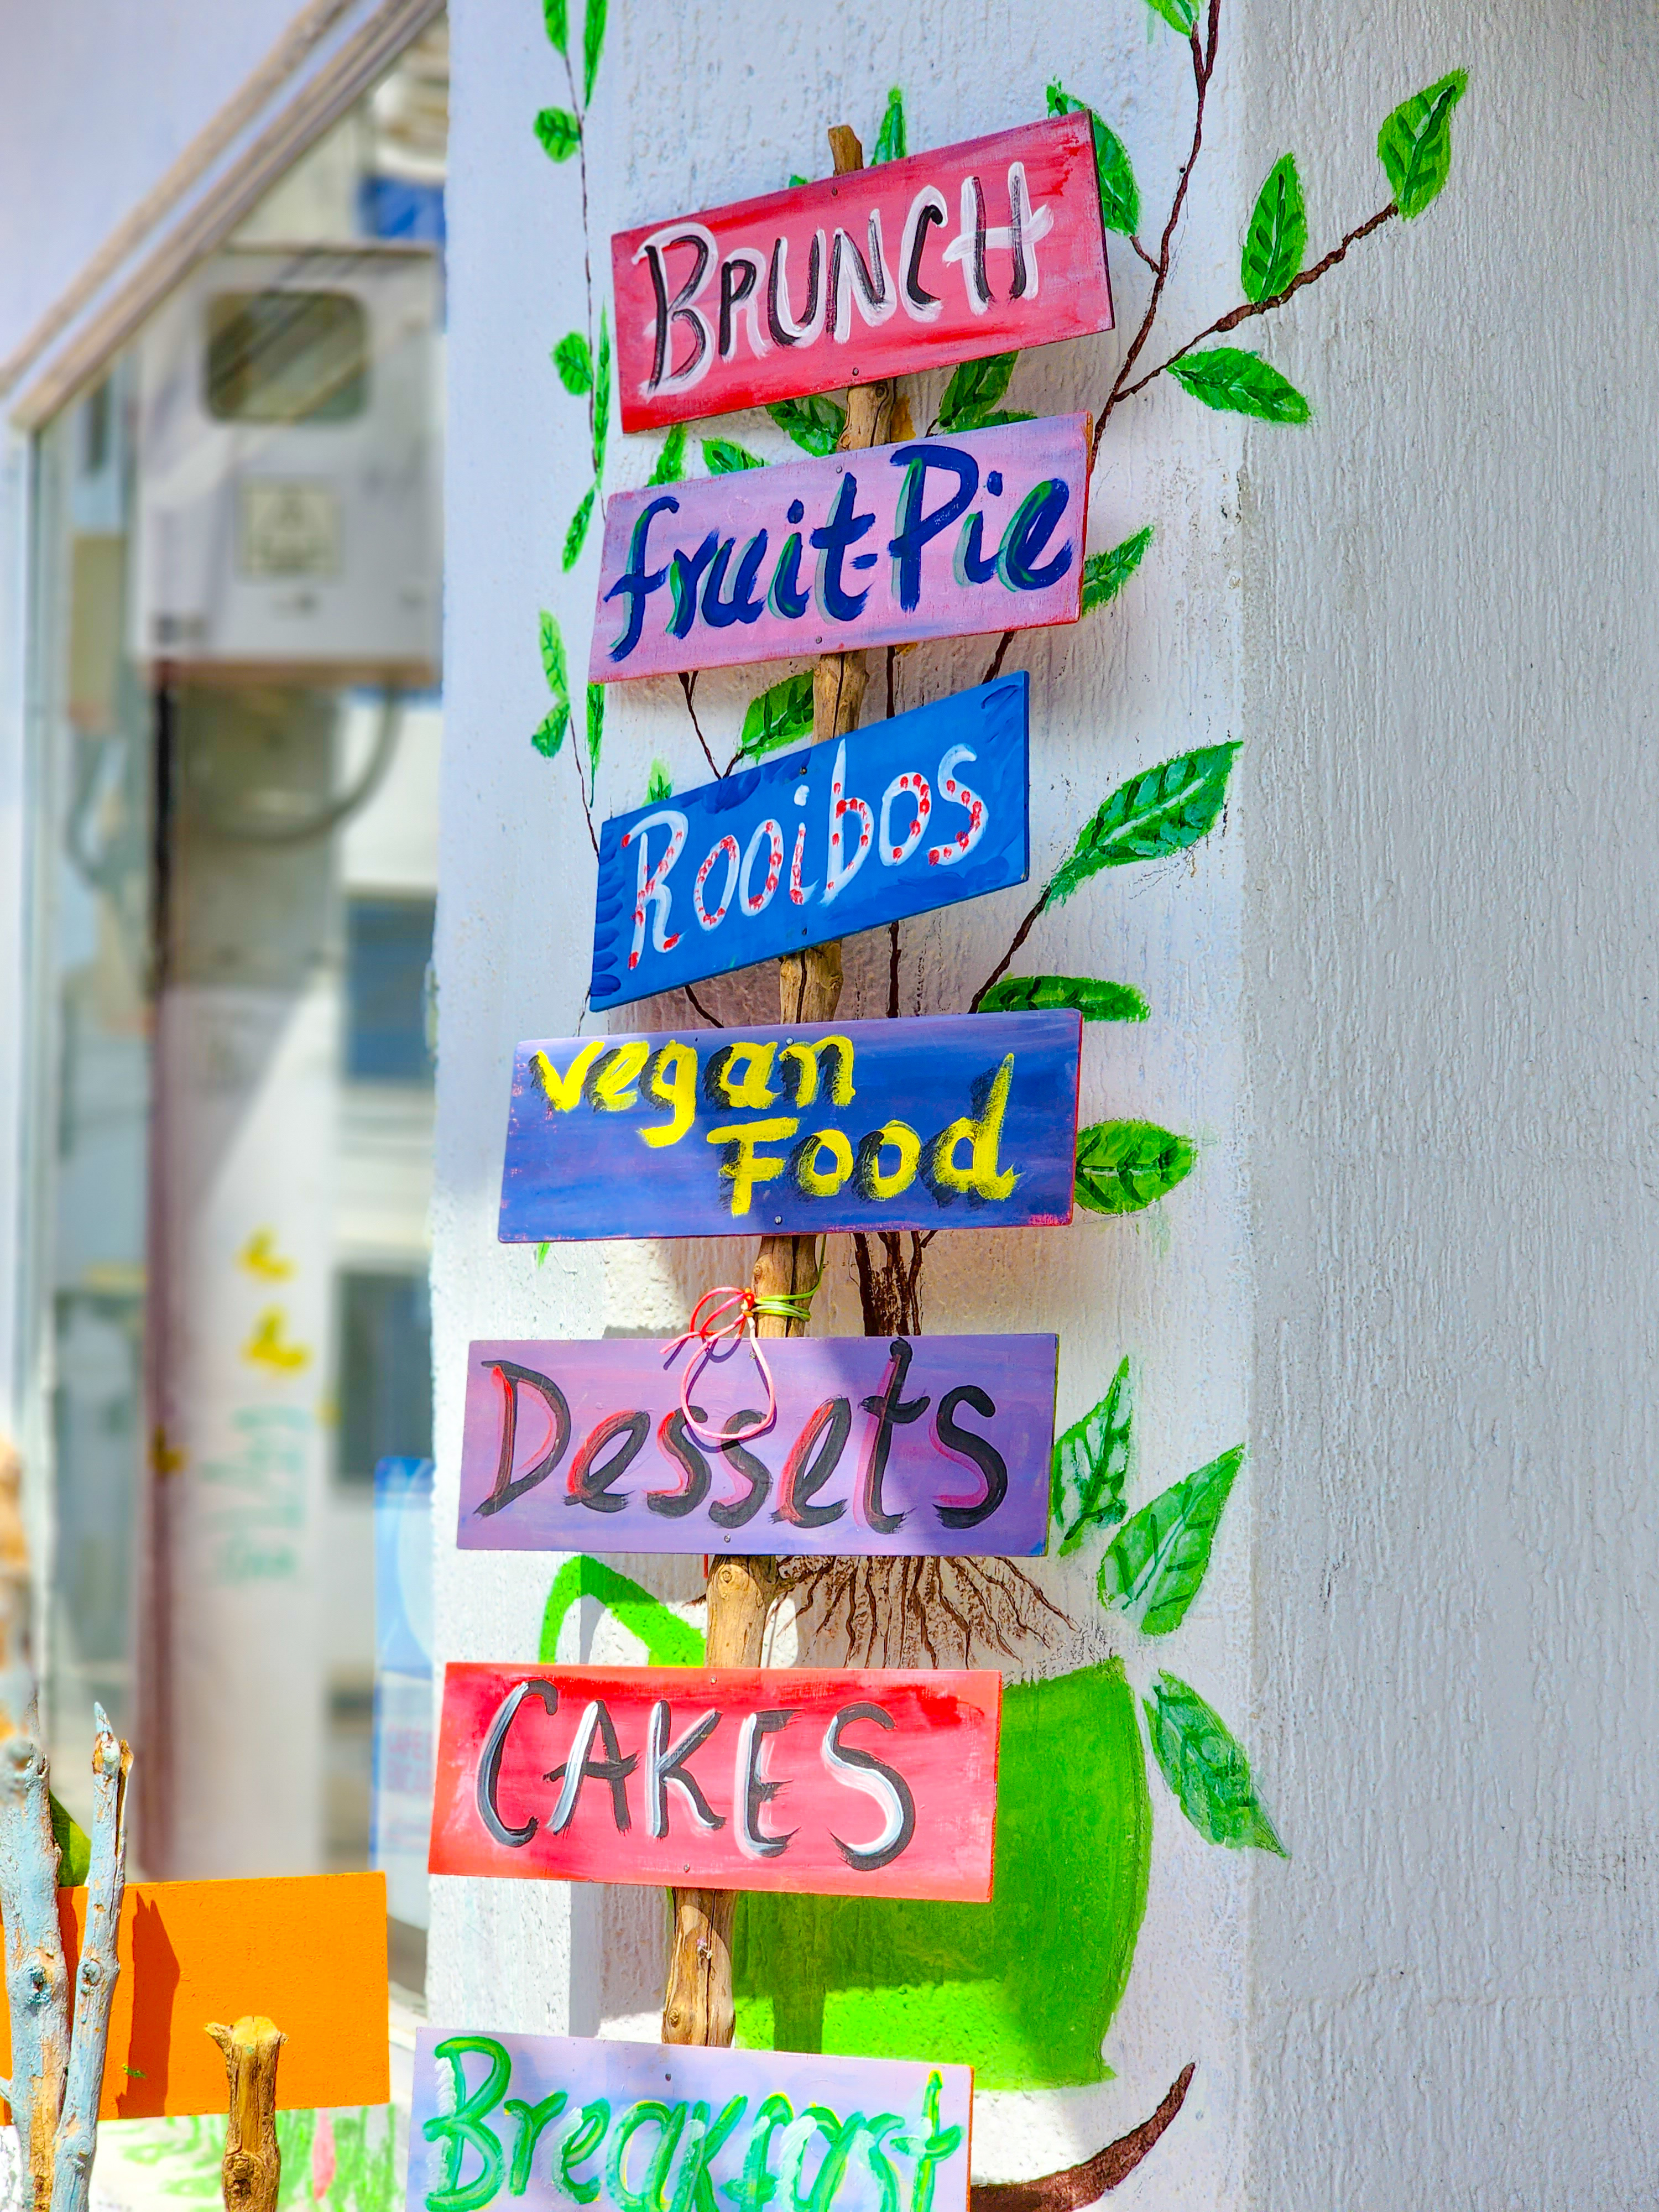 BRUNCH
fruit-Pie
Rooibos
vegan
Food
Dessets
CAKES
Breakfast